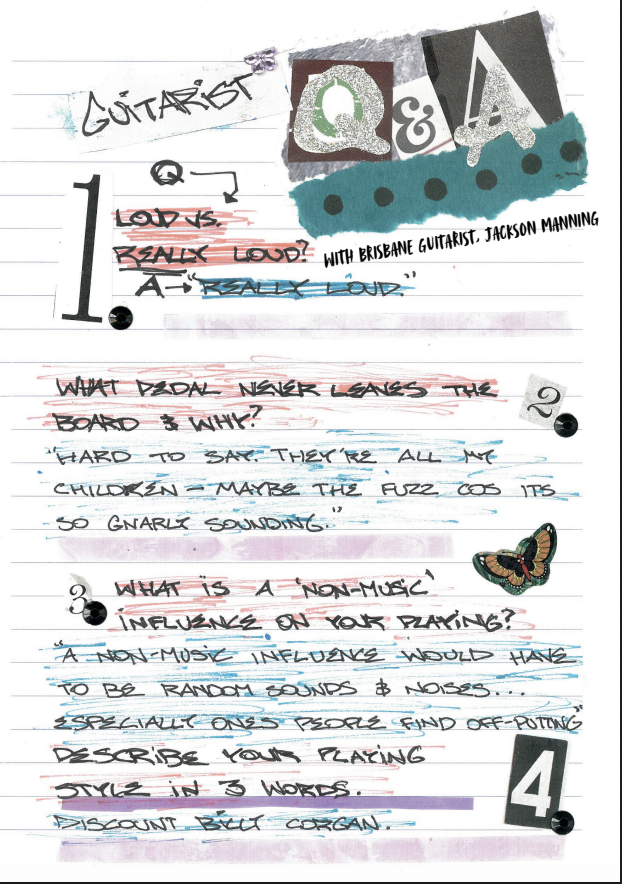 GUITARIST
Q & A
WITH BRISBANE GUITARIST, JACKSON MANNING
1
Q
LOUD VS.
REALLY LOUD?
A → "REALLY LOUD."
2
WHAT PEDAL NEVER LEAVES THE
BOARD & WHY?
"HARD TO SAY. THEY'RE ALL MY
CHILDREN - MAYBE THE FUZZ COS ITS
SO GNARLY SOUNDING."
3
WHAT IS A 'NON-MUSIC'
INFLUENCE ON YOUR PLAYING?
"A NON-MUSIC INFLUENCE WOULD HAVE
TO BE RANDOM SOUNDS & NOISES...
ESPECIALLY ONES PEOPLE FIND OFF-PUTTING"
4
DESCRIBE YOUR PLAYING
STYLE IN 3 WORDS.
DISCOUNT BILLY CORGAN.